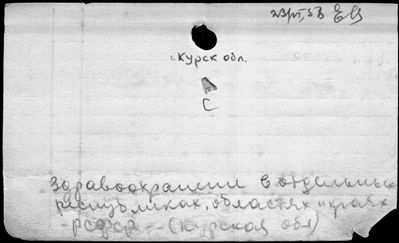 Курск обл.
С
Здравоохранении в отдельных
республиках, областях и краях
РСФСР - (Курская обл)